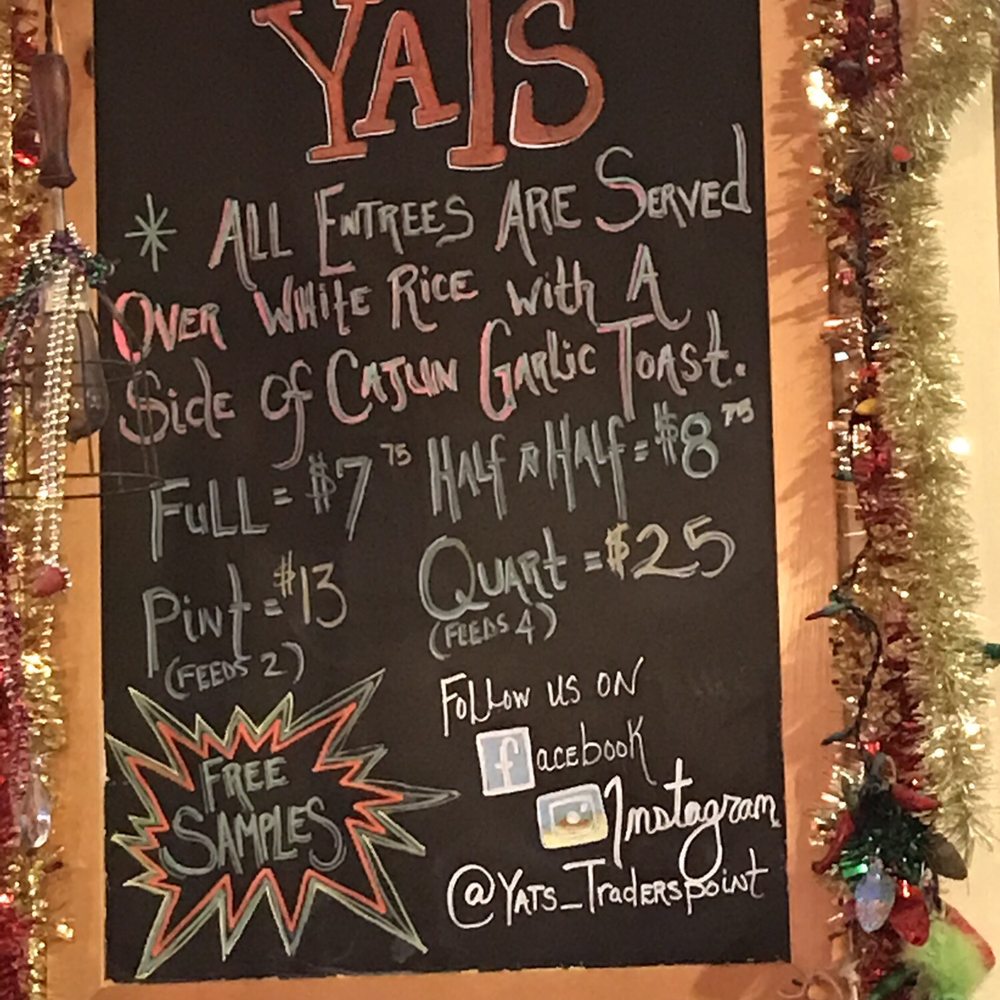 YATS
* ALL ENTREES ARE SERVEd
OVER WHitE RiCE with A
Side of CAJUN GARLiC TOASt.
FuLL = $7 75 HALf N HALf = $8 75
Pint = $13 QUARt = $25
(FEEDS 2) (FEEDS 4)
FREE
SAMPLES
FoLLow us oN
facebook
Instagram
@YATS_TRADERSPOiNt